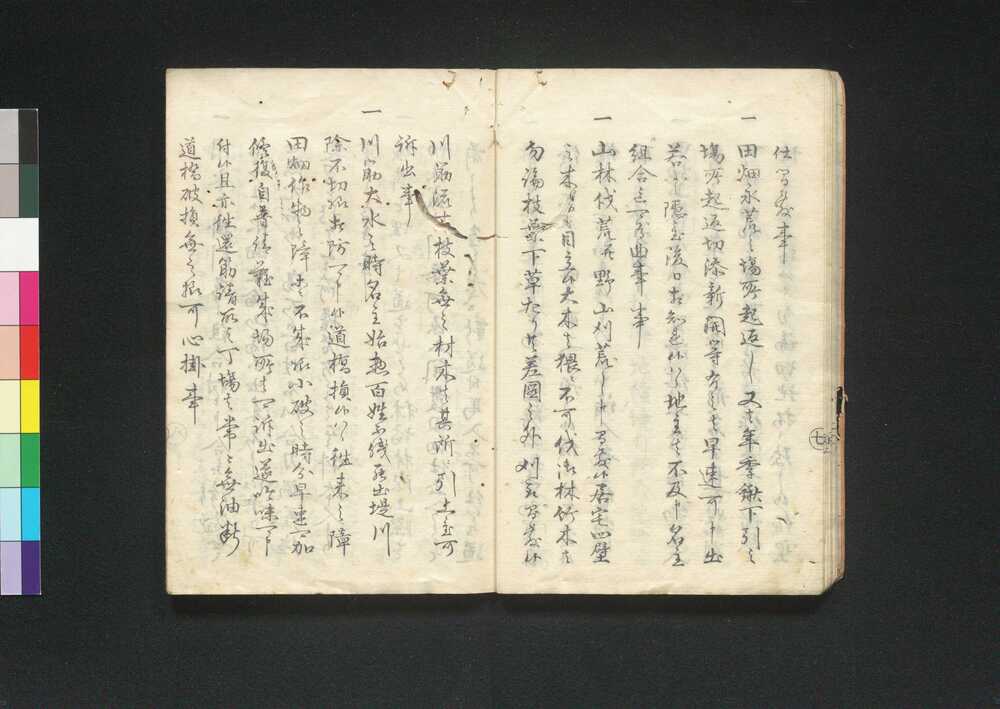 仕間敷事
一
田畑永荒之場所起返し又者年季鍬下引之
場所起返切添新開等有之者早速可申出
若シ隠置後日相知候ハヽ地主者不及申名主
組合迄可為曲事事
一
山林伐荒并野山刈荒し申間敷候居宅四壁
之木ゟ目立候大木者猥ニ不可伐御林竹木者
勿論枝葉下草たり共差図之外刈取間敷候
川筋流木枝葉無之材木者其所ニ引上置可
訴出事
一
川筋大水之時名主始惣百姓不残罷出堤川
除不切様相防可申候道橋損候ハヽ往来之障
田畑作物之障ニ不成様小破之時分早速可加
修復自普請難成場所者可訴出遂吟味可申
付候且亦往還筋請取丁場者常ニ無油断
道橋破損無之様可心掛事
七